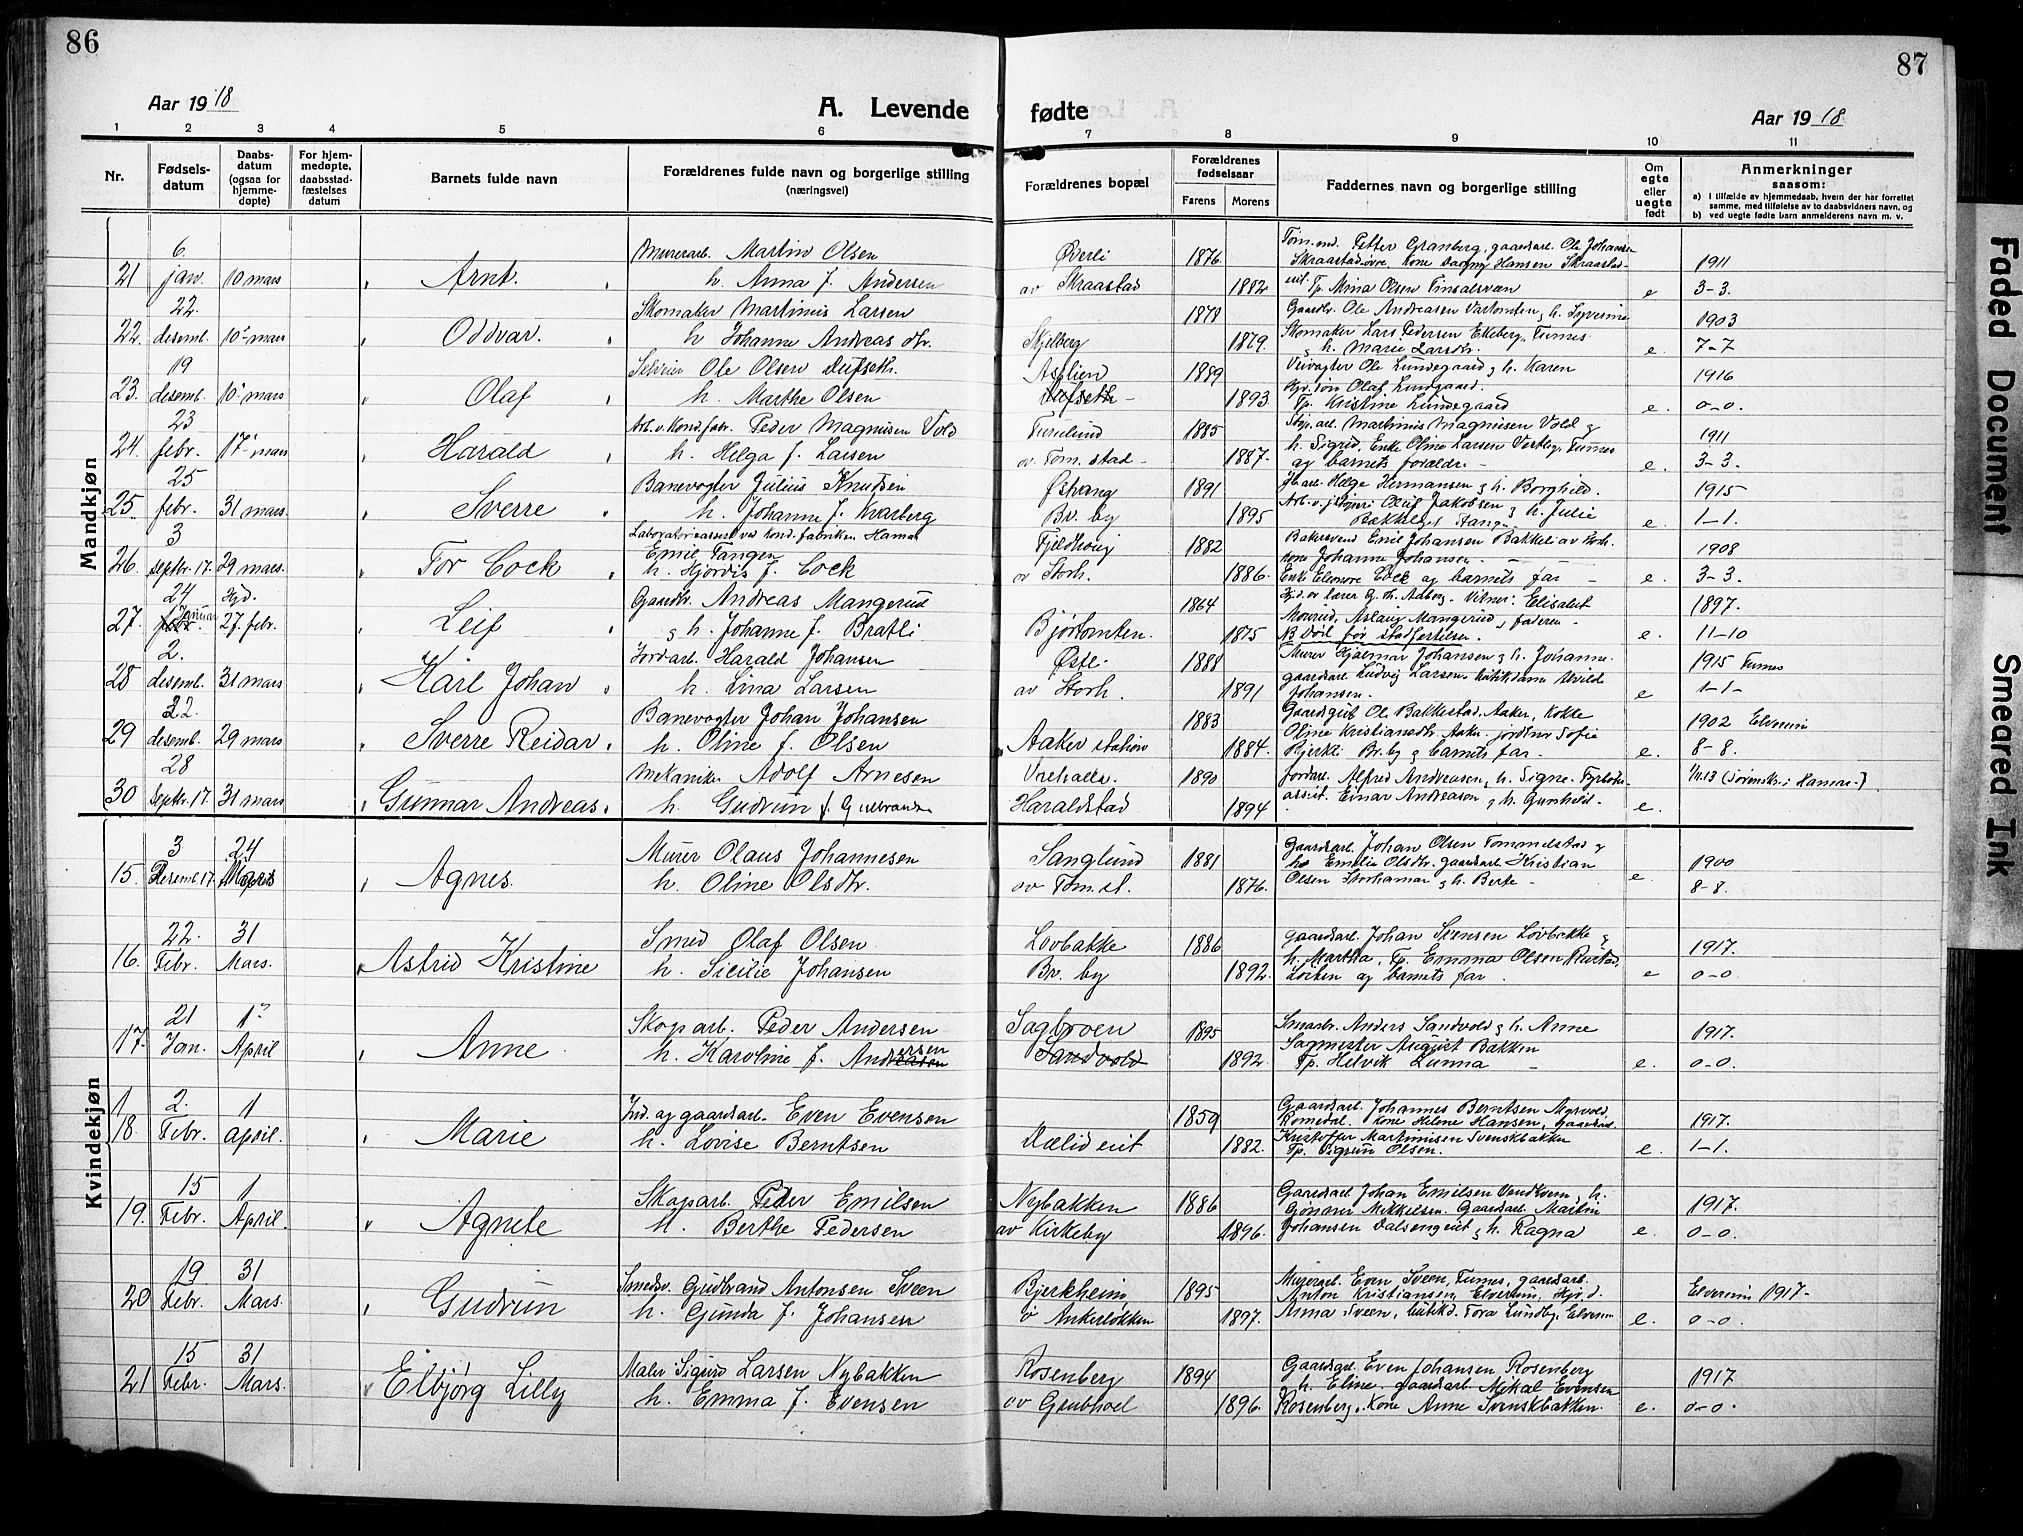 86
Aar 1918
A. Levende
1 2 3 4 5 6
Nr.
Fødsels-
datum
Daabs-
datum
(ogsaa for
hjemme-
døpte)
For hjem-
medøpte,
daabsstad-
fæstelses
datum
Barnets fulde navn
Forældrenes fulde navn og borgerlige stilling
(næringsvei)
Mandkjøn
6.
21 jan. 10 mars Arnt.
Murerarb. Martin Olsen
h. Anna f. Andersen
22.
22. desemb. 10 mars Oddvar.
Skomaker Martinius Larsen
h Johanne Andreas dtr.
19
23. desemb. 10 mars Olaf
Ole Olsen
h. Marthe Olsen
23
24. febr. 17 mars Harald
Arb. v. Kond.fabr. Peder Magnusen Vold
h. Helga f. Larsen
25
25. febr. 31 mars Sverre
Banevogter Julius Knudsen
h. Johanne f. Kvarberg
3
26. septbr. 17. 29 mars. Tor Cock
Emil Tangen
h. Hjørdis f. Cock
24 Hjd.
27. Januar 27. febr. Leif
Gaardbr. Andreas Mangerud
g h. Johanne f. Bratli
2.
28 desemb. 31 mars Karl Johan
Jordarb. Harald Johansen
h. Lina Larsen
22.
29 desemb. 29 mars Sverre Reidar.
Banevogter Johan Johansen
h. Oline f. Olsen
28
30 Septbr. 17. 31 mars Gunnar Andreas.
Mekaniker Adolf Arnesen
h. Gudrun f. Gulbrands
Kvindekjøn
3 24
15. Desemb. 17. Mars Agnes.
Murer Olaus Johannesen
h. Oline Olsdtr.
22. 31
16. Febr. Mars. Astrid Kristine
Smed Olaf Olsen
h. Sicilie Johansen
21 1
17. Jan. April Anne
Skogarb. Peder Andersen
h. Karoline f. Andersen
2. 1
18. Febr. April. Marie
Ind. og gaardsarb. Even Evensen
h. Lovise Berntsen
15 1
19. Febr. April. Agnete
Skogarb. Peder Emilsen
h. Berthe Pedersen
19 31
20 Febr. Mars. Gudrun
Smedsv. Gudbrand Antonsen Sveen
h. Gunda f. Johansen
15 31
21 Febr. Mars. Elbjørg Lilly
Maler Sigurd Larsen Nybakken
h. Emma f. Evensen
87
fødte
Aar 1918
7 8 9 10 11
Forældrenes bopæl
Forældrenes
fødselsaar
Farens Morens
Faddernes navn og borgerlige stilling
Om
egte
eller
uegte
født
Anmerkninger
saasom:
a) I tilfælde av hjemmedaab, hvem der har forrettet
samme, med tilføielse av to daabsvidners navn, og
b) ved uegte fødte barn anmelderens navn m. v.
Øverli
av Skraastad
1876 1882
Tøm.md. Petter Granberg, gaardsarb. Ole Johansen
Skraastad øvre. Kone Dagny Hansen Skraastad-
eiet. Tp. Mina Olsen Finsalsveen
e 1911
3-3.
Skjelberg
1879.
Gaardbr. Ole Andreasen Vartomten g h. Syverine
Skomaker Lars Pedersen Ekeberg, Furnes
g h. Marie Larsdtr.
e. 1903
7-7
Asplien
1889 1893
Veivogter Ole Lundegaard g h. Karen
Gjv. Søn Olaf Lundgaard.
Tp. Kristine Lundegaard
e. 1916
0-0.
Furulund
av Tom. stad
1885 1887.
Skog.arb. Martinus Magnusen Vold g
h. Sigrid, Enke Oline Larsen Furnes
og barnets forældre.
e. 1911
3-3.
Østvang
Br. by
1891 1895
Helge Hermansen g h. Borghild.
Olaf Jakobsen g h. Julie
Bakkehaug Stange
e. 1915
1-1.
Fjeldhøug
av Storh.
1882 1886.
Bakersvend Emil Johansen Bakkeli av Storh.
kone Johanne Johansen
Enke Eleonore Cock og barnets far
e. 1908
3-3.
Bjørtomten.
1864 1875
Hjd. av lærer G. Th. Aaberg. Vitner: Elisabet
Mourud, Aslaug Mangerud, faderen
NB Død før stadfestelsen.
e. 1897.
11-10
Øste.
av Storh.
1888 1891.
Murer Hjalmar Johansen g h. Johanne.
gaardsarb. Ludvig Larsen. butikdame Alvilde
Johansen.
e 1915 Furnes
1-1-
Aaker station
1883 1884.
Gaardsgut Ol. Bakkestad. Aaker, Kokke
Oline Kristiansdtr. Aaker. jordmor Sofie
Bjerke Br. by g barnets far
e. 1902 Elverum
8-8.
Haraldstad
1890 1894
Jordarb. Alfred Andreasen g h. Signe.
assist. Einar Andreason g h. Gunhild.
e.
Sanglund
av Tom. st.
1881 1876.
Gaardsarb. Johan Olsen Tommelstad g
h. Emelie Olsdtr. gaardsarb. Kristian
Olsen Storhamar g h. Berte
e. 1900
8-8.
Lovbakke
Br. by
1886 1892.
gaardsarb. Johan Svensen Lovbakke g
h. Martha, Tp. Emma Olsen
Løiten og barnets far.
e 1917.
0-0.
Sagbroen
Sandvold
1895 1892
Smaabr. Anders Sandvold g h. Anne
Sagmester August Bækken
Tp. Helvik Lunna
e. 1917.
0-0.
Dælid eiet
1859 1882.
Gaardsarb. Johannes Berntsen Myrvold,
Romedal. Kone Helene Hansen, Gaardsarb.
Kristoffer Martinusen Svenskbakken
Tp. Sigrun Olsen.
e. 1917.
1-1.
Nybakken
av Kirkeby
1886 1896.
Gaardsarb Johan Emilsen Vendkvern g h.
Gønner Mikkelsen. Gaardsarb. Martin
Johansen Dalsengeiet g h. Ragna
e. 1917.
0-0.
Bjerkheim
Ankerløkken
1895 1897.
Murerarb. Even Sveen, Furnes, gaardsarb.
Anton Kristiansen, Elverum, Hjv. d.
Anna Sveen, butikd. Tora Lundby, Elverum
e. Elverum 1917-
0-0.
Rosenberg
av Grubhoel
1894 1896.
Gaardsarb. Even Johansen Rosenberg
h. Eline. gaardsarb. Mikal Evensen
Rosenberg. Kone Anne Svenskbakken.
e. 1917
0-0.
Faded Document
Smeared Ink